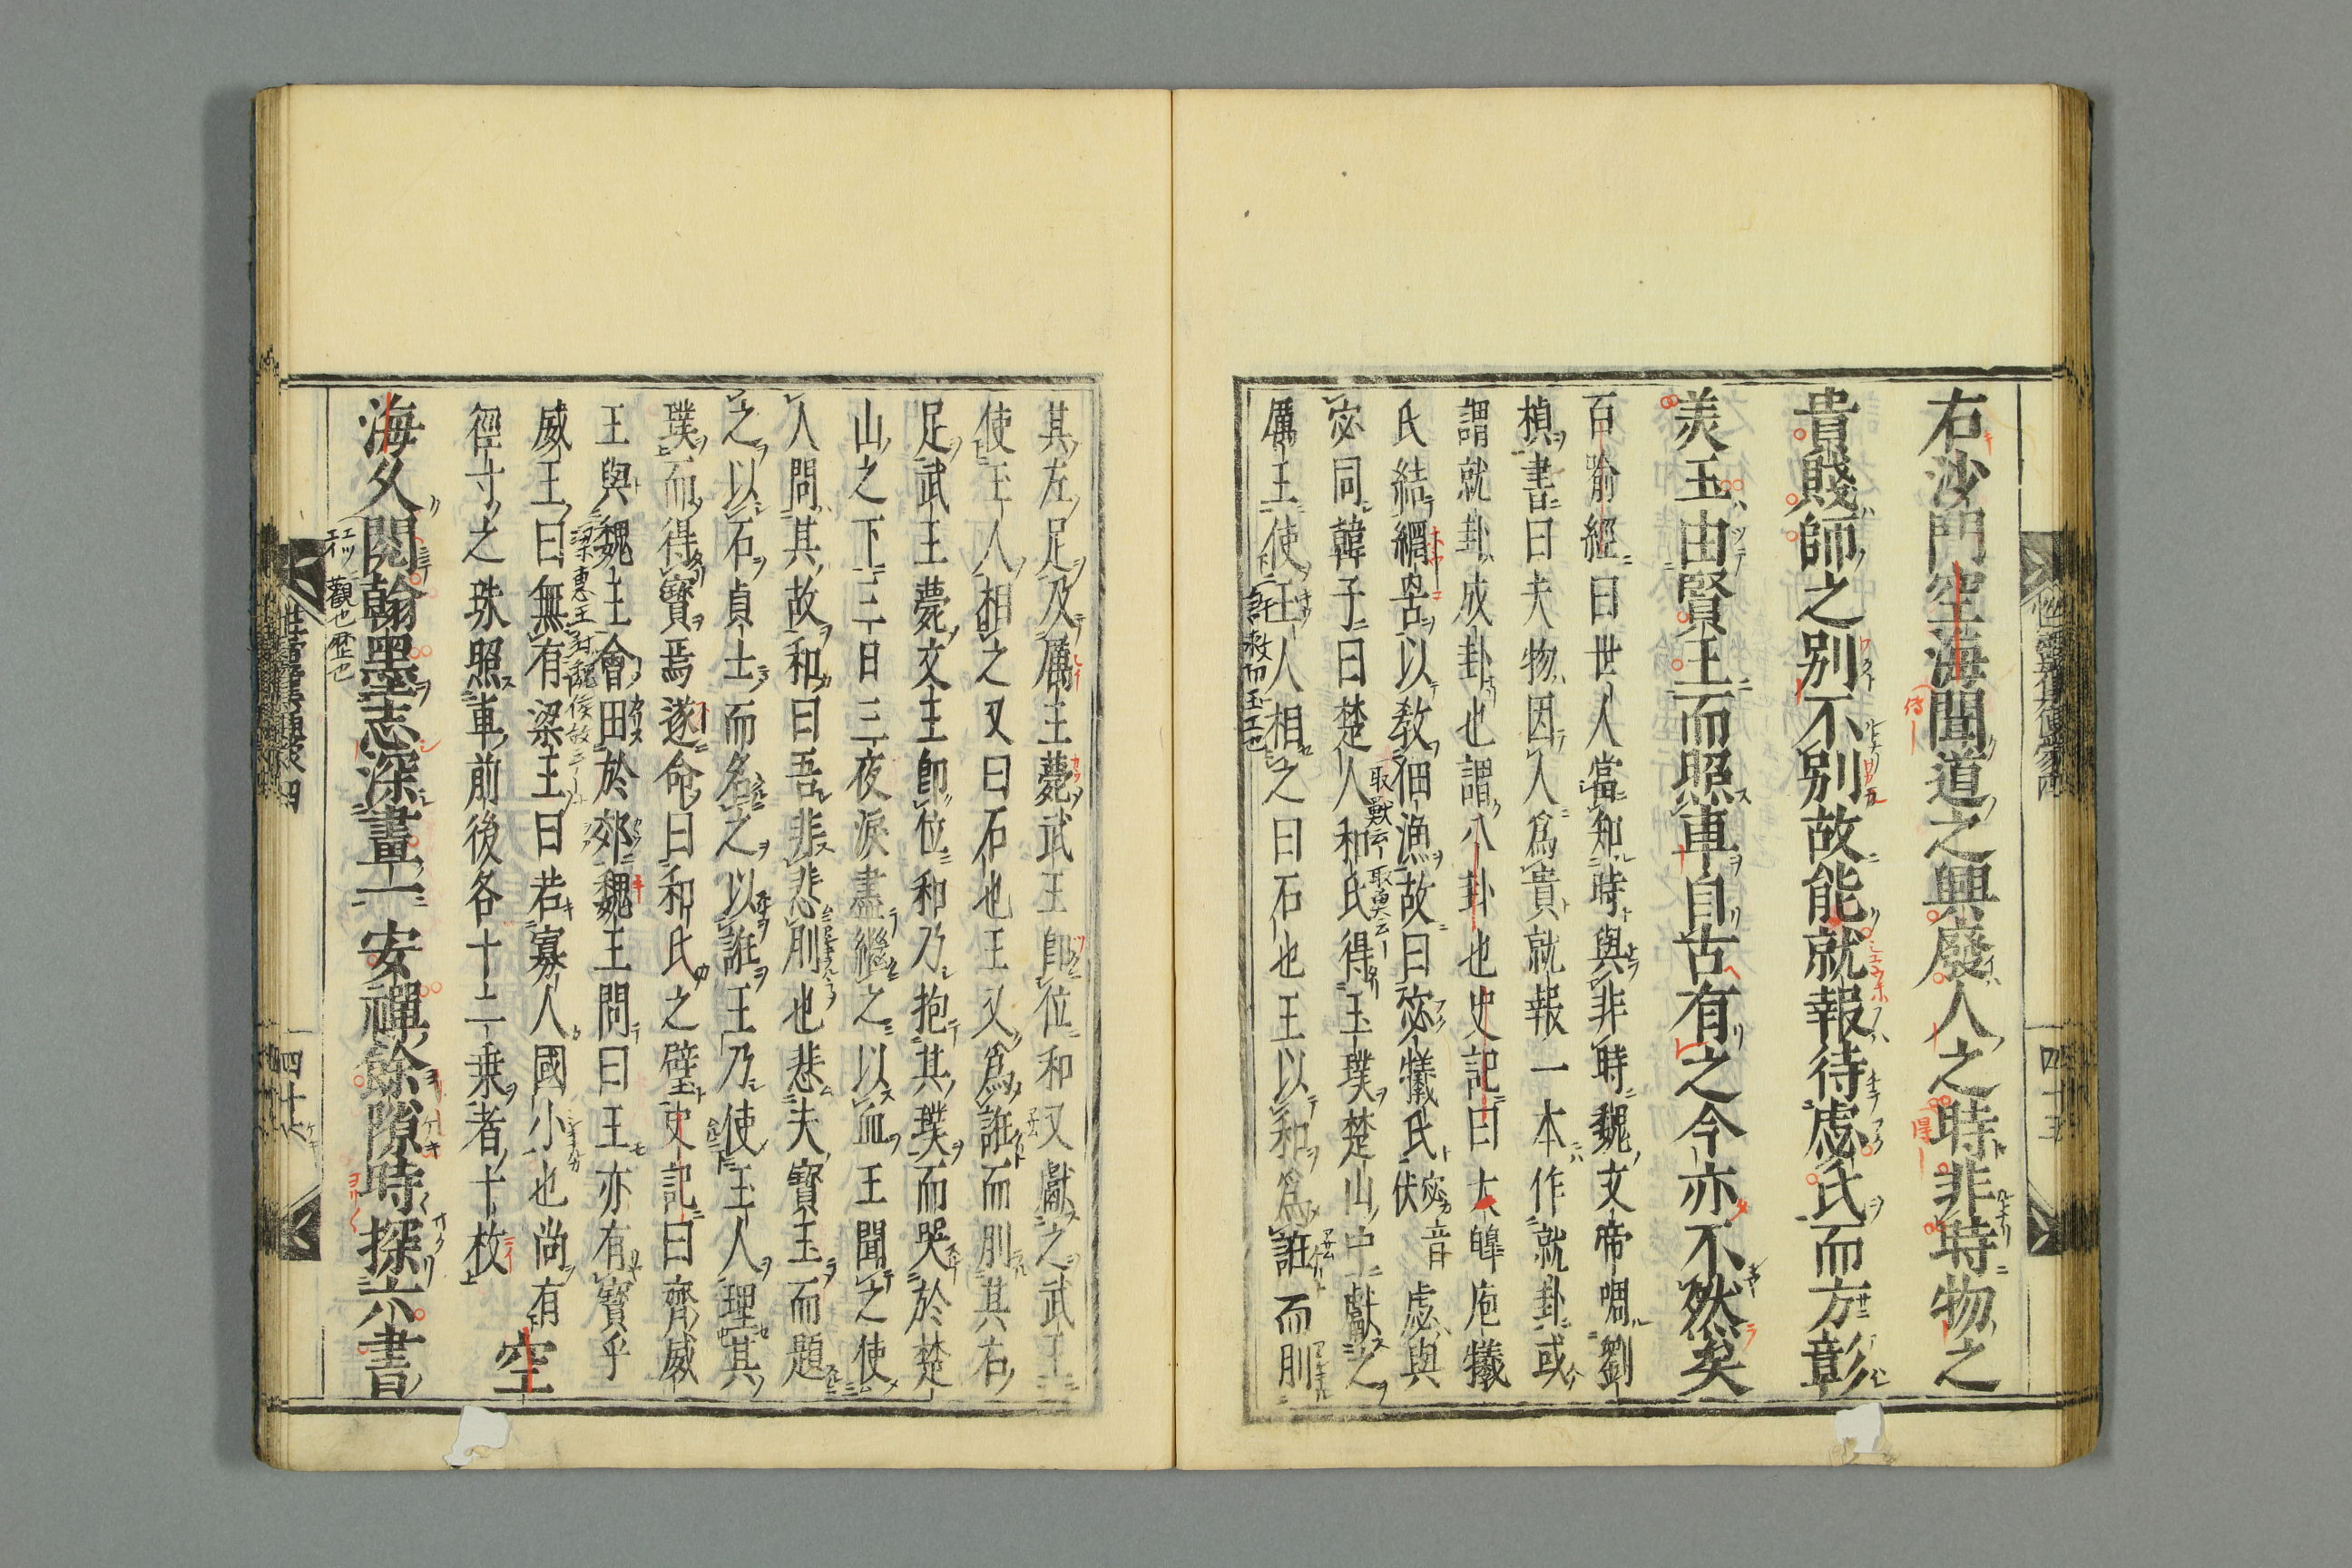 右沙門空海聞道之興廢人之時非時物之
貴賤師之別不別故能就報待虙氏而方彰
美玉由賢王而照車自古有之今亦不然矣
百喻經曰世人當知時與非時魏文帝啁劉
楨書曰夫物因人爲貴就報一本作就卦或
謂就卦成卦也謂八卦也史記曰大皥庖犧
氏結網罟以敎佃漁故曰宓犧氏宓音伏虙與
宓同韓子曰楚人和氏得玉璞楚山中獻之
厲王使玉人相之曰石也王以和爲誑而刖
四十五
其左足及厲王薨武王卽位和又獻之武王
使玉人相之又曰石也王又爲誑而刖其右
足武王薨文王卽位和乃抱其璞而哭於楚
山之下三日三夜淚盡繼之以血王聞之使
人問其故和曰吾非悲刖也悲夫寶玉而題
之以石貞士而名之以誑王乃使玉人理其
璞而得寶焉遂命曰和氏之璧史記曰齊威
王與魏王會田於郊魏王問曰王亦有寶乎
威王曰無有梁王曰若寡人國小也尚有
徑寸之珠照車前後各十二乘者十枚
空
海久閱翰墨志深畫一安禪餘隙時探六書
觀也歷也
性靈集便蒙四
四十六